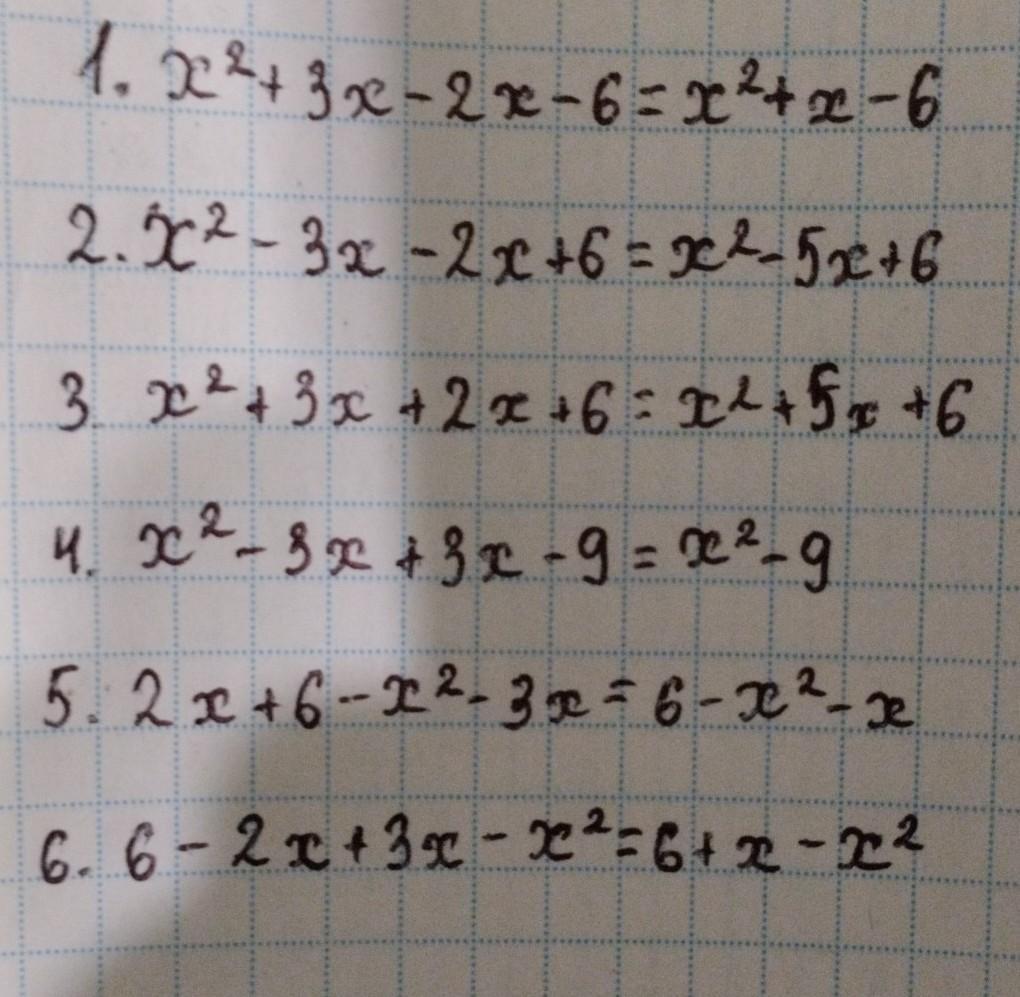 1. x²+3x-2x-6=x²+x-6
2. x²-3x-2x+6=x²-5x+6
3. x²+3x+2x+6=x²+5x+6
4. x²-3x+3x-9=x²-9
5. 2x+6-x²-3x=6-x²-x
6. 6-2x+3x-x²=6+x-x²